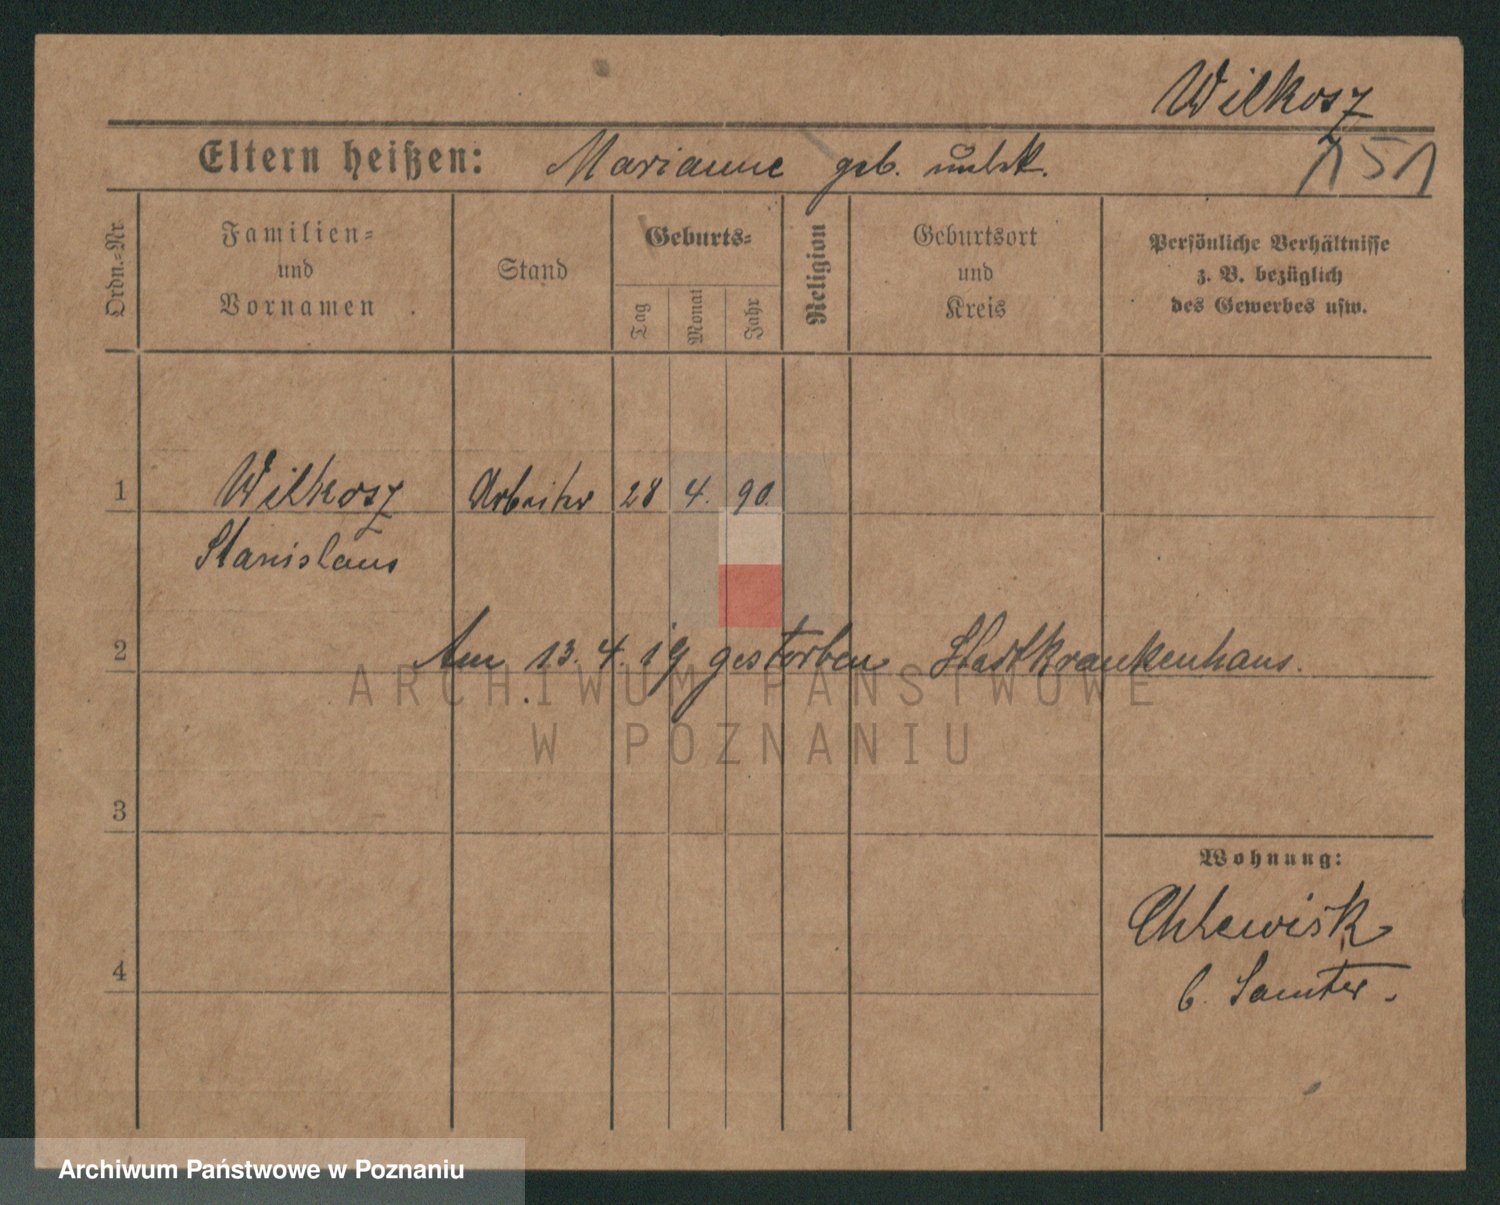 Wilkosz
Eltern heißen: Marianne geb. unbek.
151
Ordn.-Nr.
Familien-
und
Vornamen
Stand
Geburts-
Tag
Monat
Jahr
Religion
Geburtsort
und
Kreis
Persönliche Verhältnisse
z. B. bezüglich
des Gewerbes usw.
1 Wilkosz Arbeiter 28 4. 90.
Stanislaus
2 Am 13. 4. 19 gestorben Stadtkrankenhaus.
ARCHIWUM PAŃSTWOWE
W POZNANIU
3
Wohnung:
Chlewisk
4
b. Samter.
Archiwum Państwowe w Poznaniu